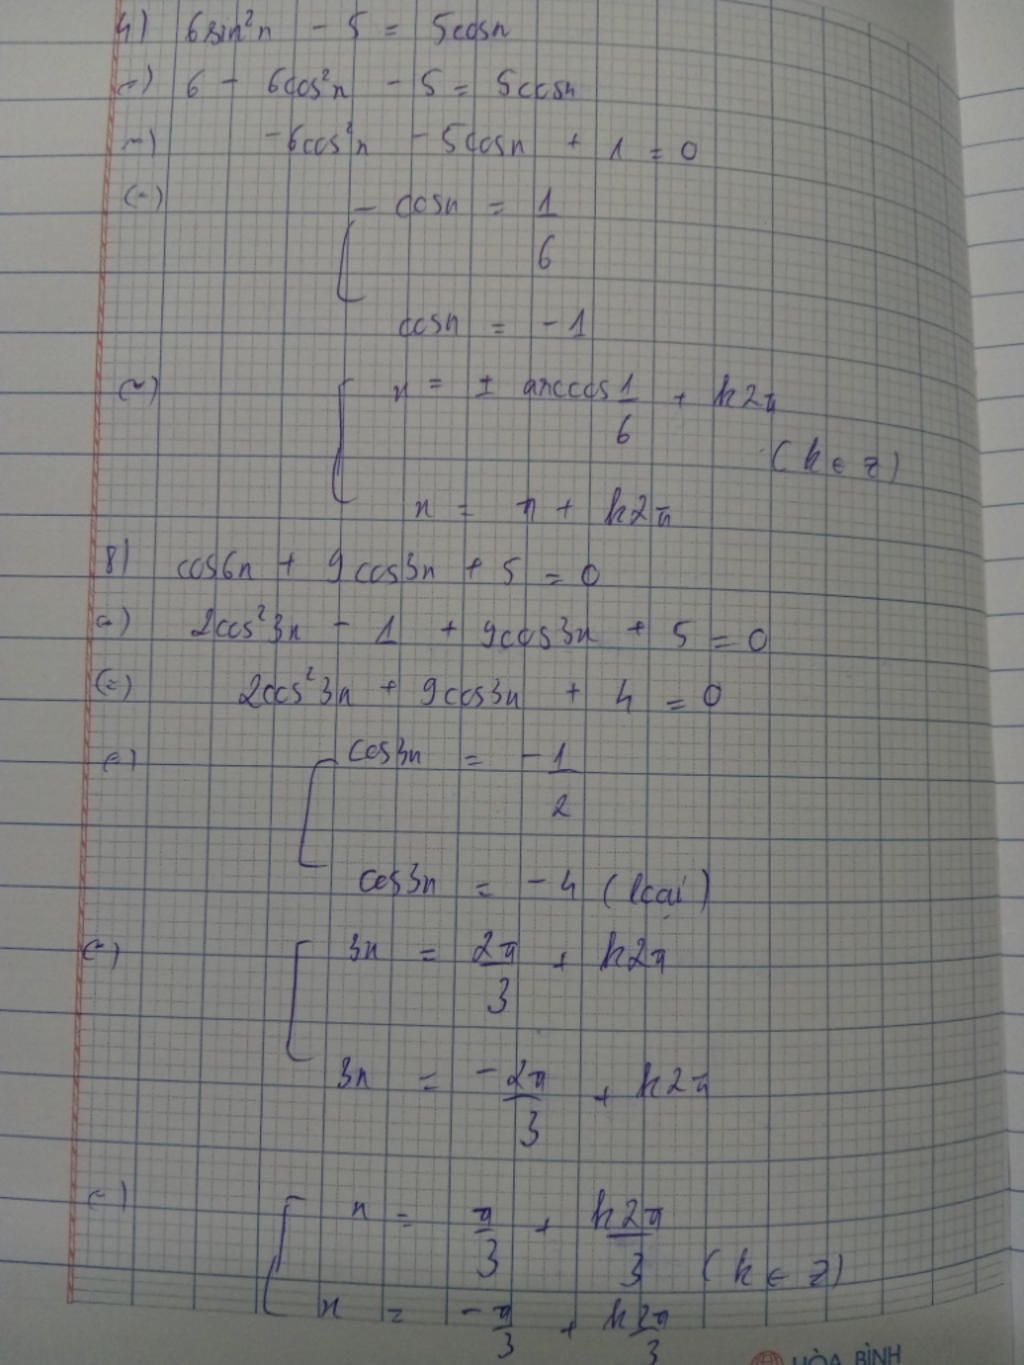 4) 6sin²x - 5 = 5cosx
(=) 6 - 6cos²x - 5 = 5cosx
(=) -6cos²x - 5cosx + 1 = 0
(=) [ cosx = 1/6
cosx = -1
(=) [ x = ± arccos 1/6 + k2π
(k ∈ z)
x = π + k2π
8) cos6x + 9cos3x + 5 = 0
(=) 2cos²3x - 1 + 9cos3x + 5 = 0
(=) 2cos²3x + 9cos3x + 4 = 0
(=) [ cos3x = -1/2
cos3x = -4 (loại)
(=) [ 3x = 2π/3 + k2π
3x = -2π/3 + k2π
(=) [ x = π/3 + k2π/3 (k ∈ z)
x = -π/3 + k2π/3
HÒA BÌNH